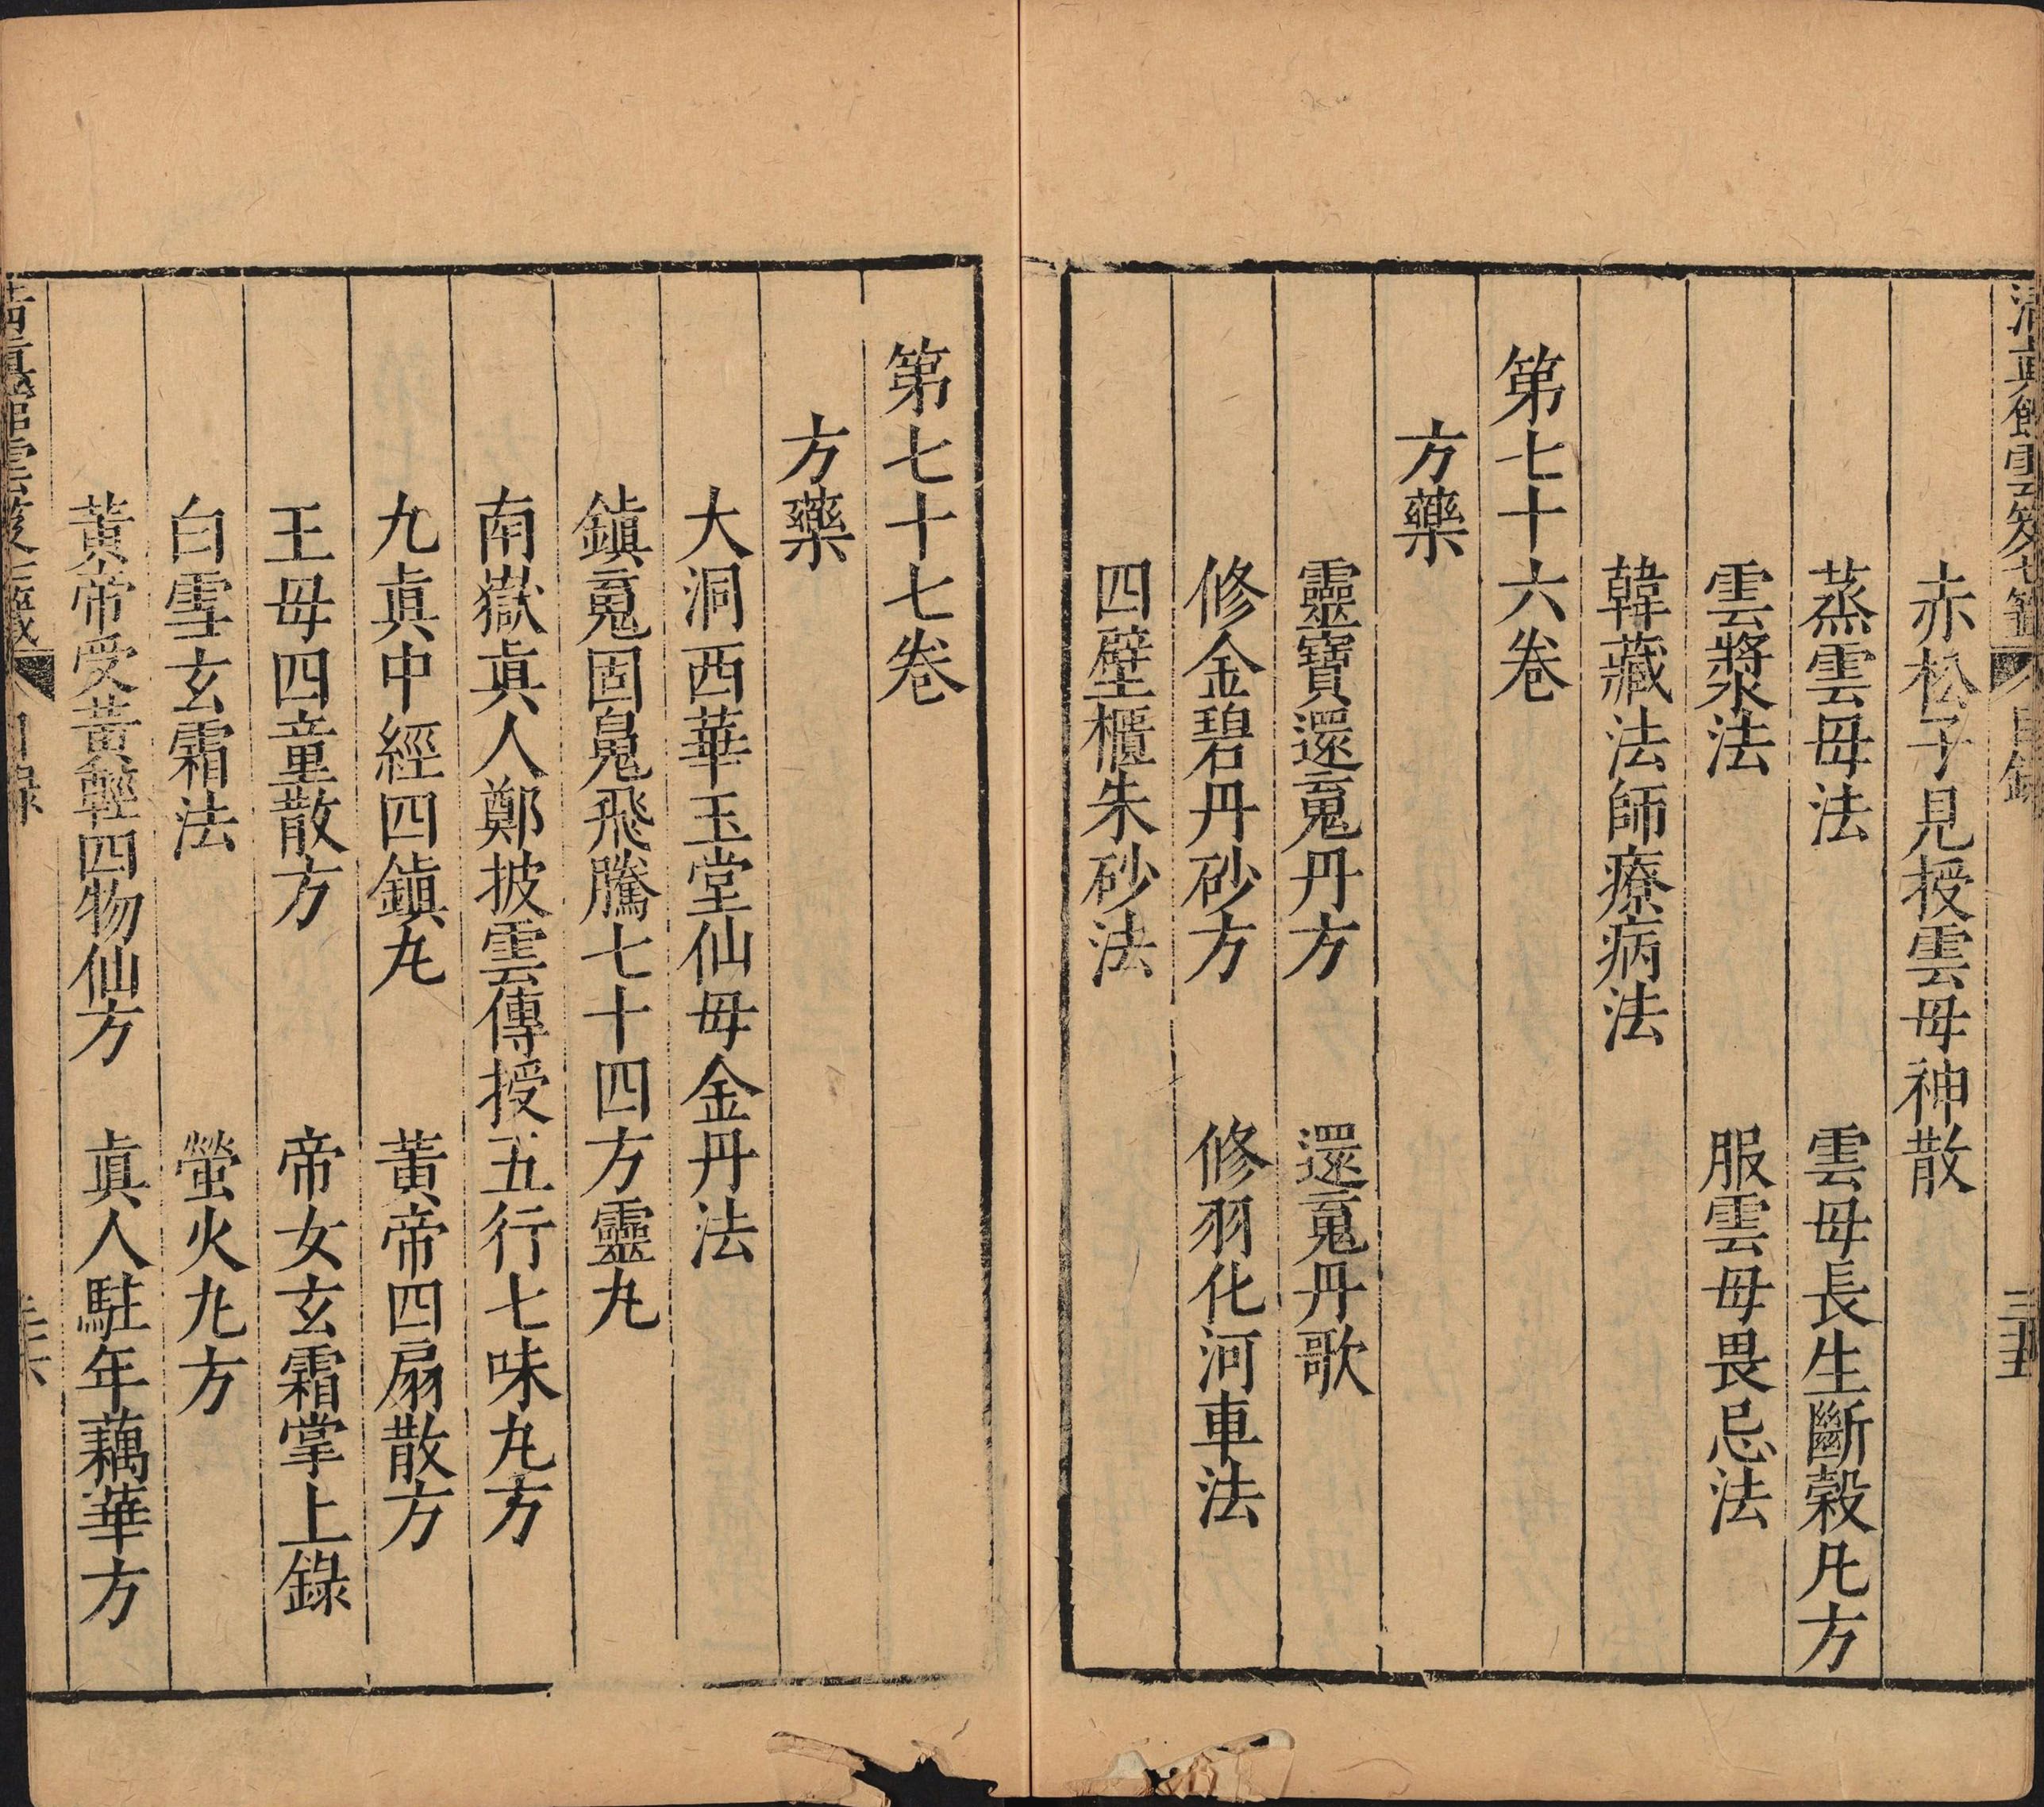 清真館雲笈七籤 目錄 三十五
赤松子見授雲母神散
蒸雲母法 雲母長生斷穀凡方
雲漿法 服雲母畏忌法
韓藏法師療病法
第七十六卷
方藥
靈寶還䰟丹方 還䰟丹歌
修金碧丹砂方 修羽化河車法
四壁櫃朱砂法
第七十七卷
方藥
大洞西華玉堂仙母金丹法
鎮䰟固䰟飛騰七十四方靈丸
南嶽眞人鄭披雲傳授五行七味丸方
九眞中經四鎮丸 黃帝四扇散方
王母四童散方 帝女玄霜掌上錄
白雪玄霜法 螢火丸方
黃帝受黃輕四物仙方 眞人駐年藕華方
目錄